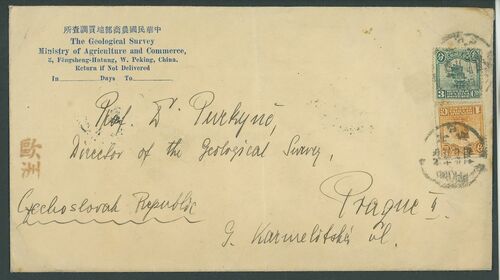 中華民國農商部地質調查所
The Geological Survey
Ministry of Agriculture and Commerce,
3, Fêngsheng-Hutung, W. Peking, China.
Return if Not Delivered
In Days To
Prof. Dr Purkyně,
Director of the Geological Survey,
歐洲
Czechoslovak Republic
Prague II
G. Karmelitská ul.
3
1
PEKING